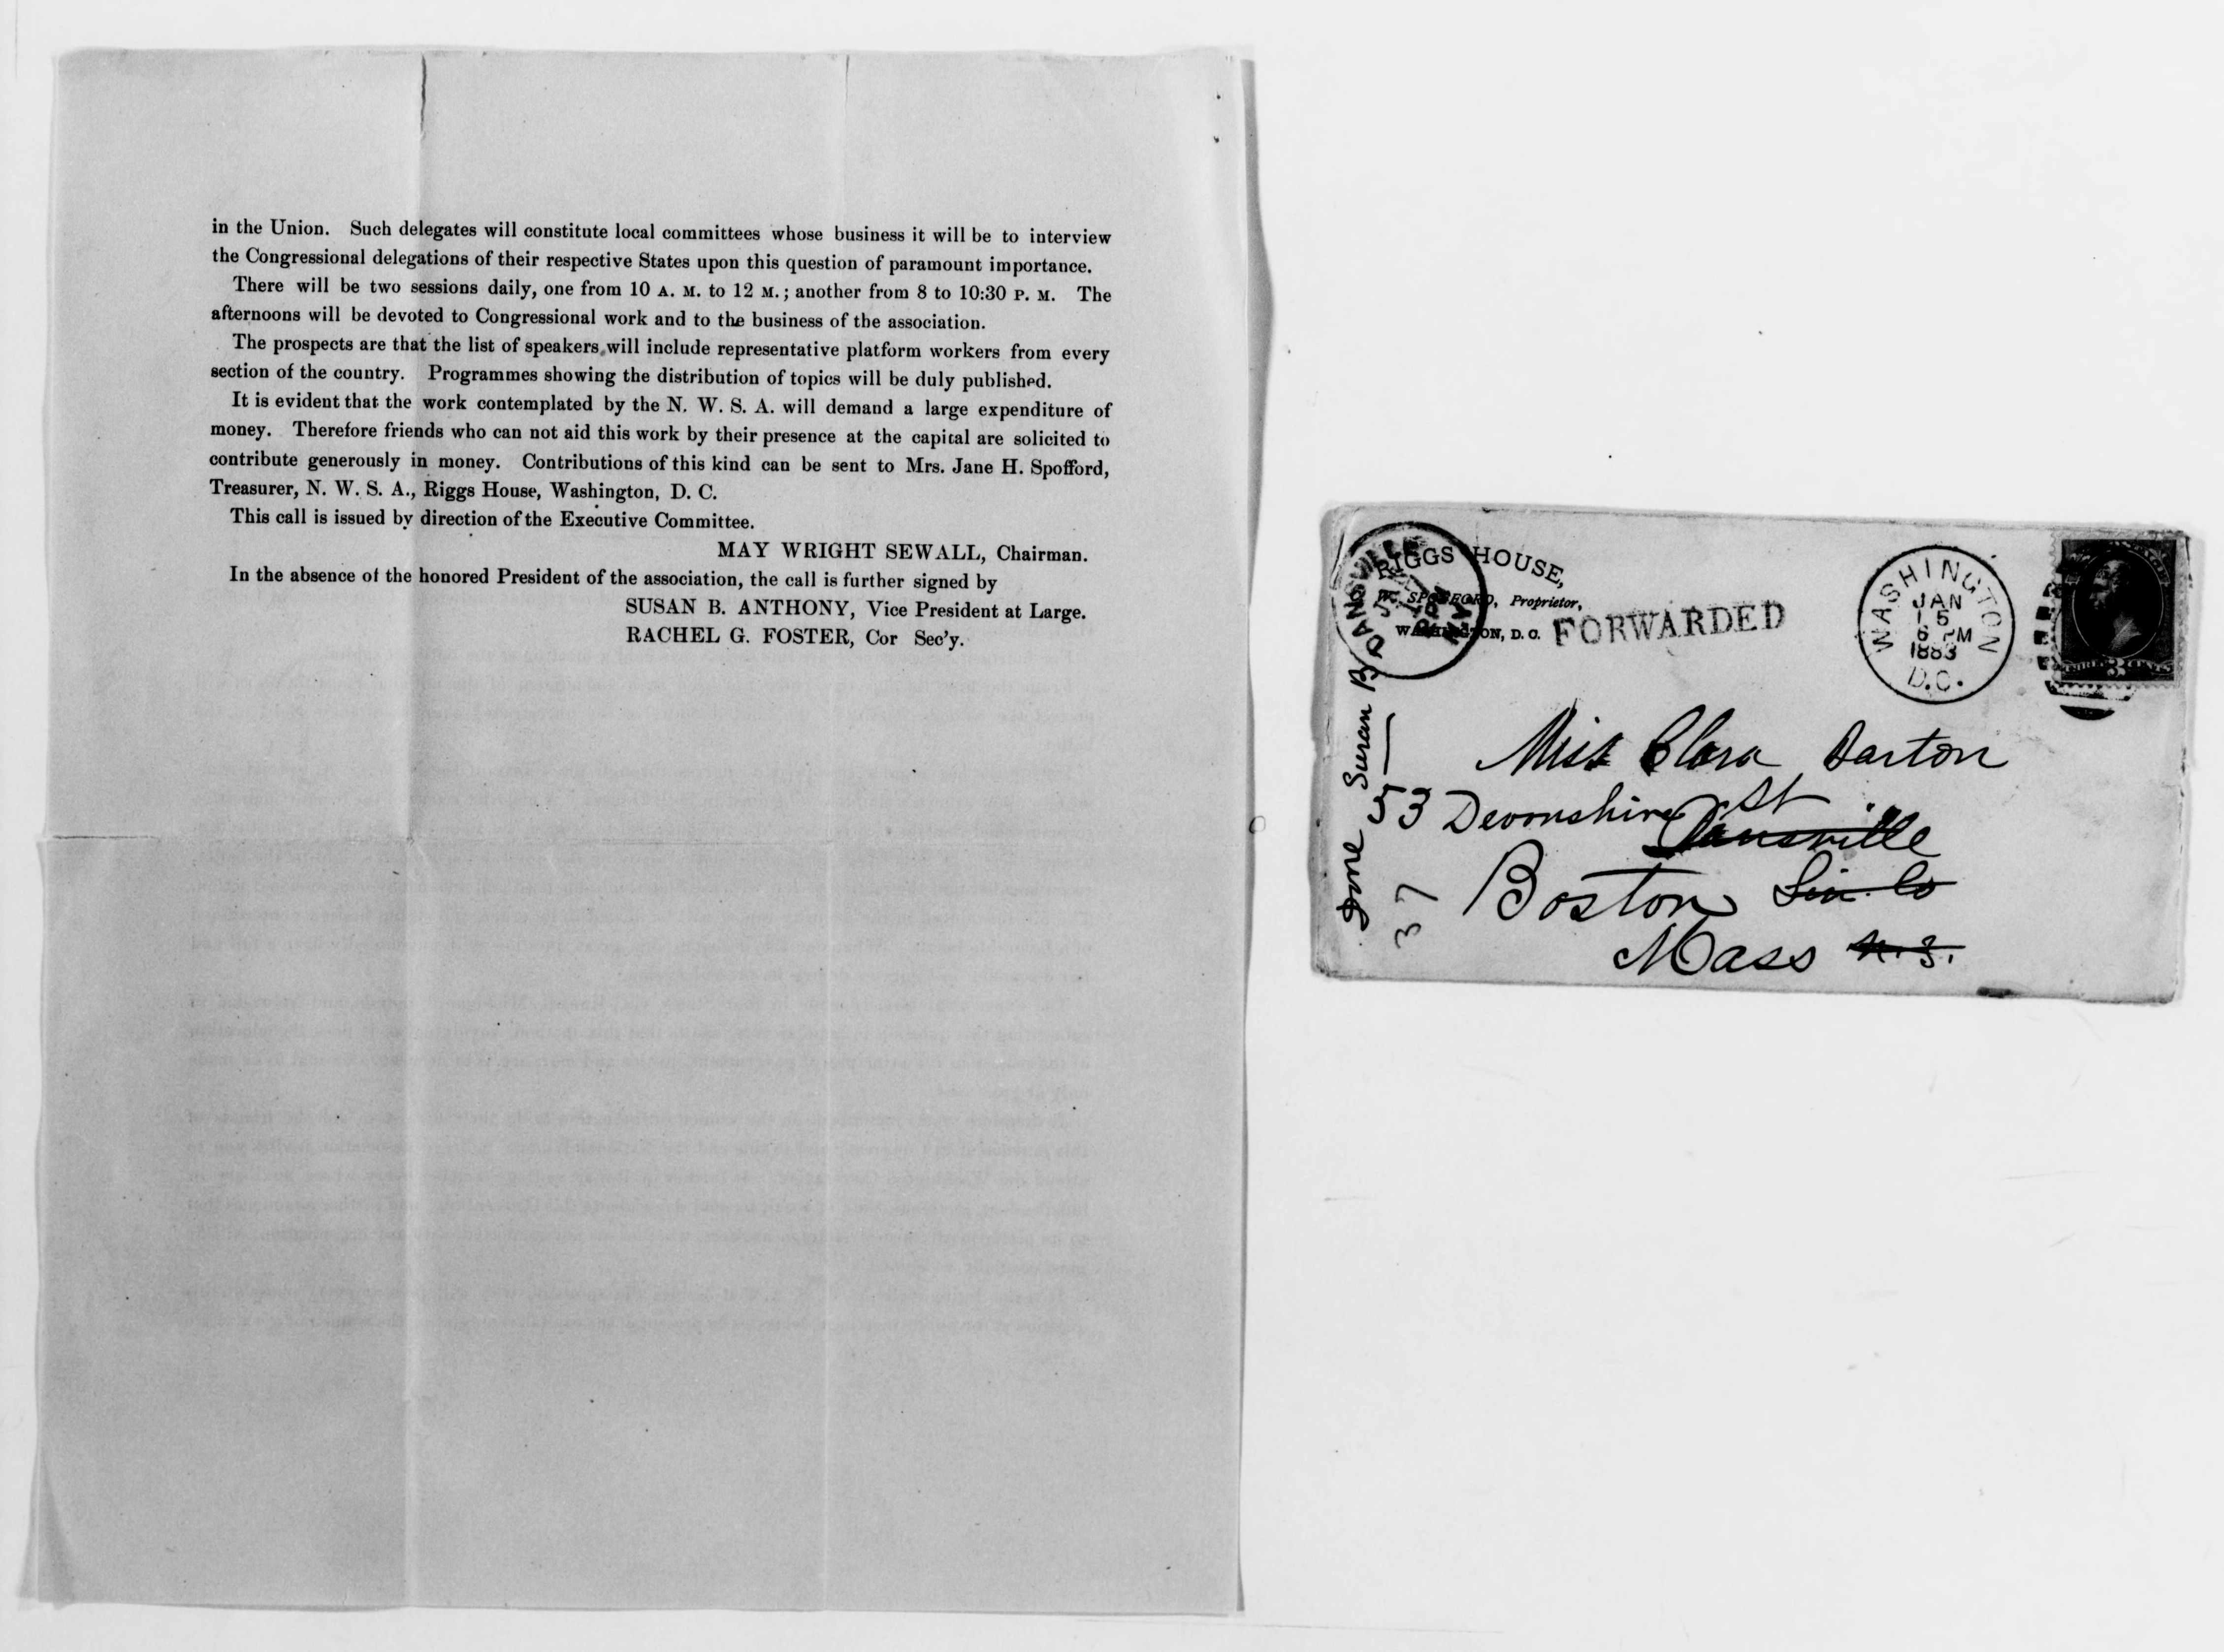 in the Union. Such delegates will constitute local committees whose business it will be to interview
the Congressional delegations of their respective States upon this question of paramount importance.
There will be two sessions daily, one from 10 A. M. to 12 M.; another from 8 to 10:30 P. M. The
afternoons will be devoted to Congressional work and to the business of the association.
The prospects are that the list of speakers will include representative platform workers from every
section of the country. Programmes showing the distribution of topics will be duly published.
It is evident that the work contemplated by the N. W. S. A. will demand a large expenditure of
money. Therefore friends who can not aid this work by their presence at the capital are solicited to
contribute generously in money. Contributions of this kind can be sent to Mrs. Jane H. Spofford,
Treasurer, N. W. S. A., Riggs House, Washington, D. C.
This call is issued by direction of the Executive Committee.
MAY WRIGHT SEWALL, Chairman.
In the absence of the honored President of the association, the call is further signed by
SUSAN B. ANTHONY, Vice President at Large.
RACHEL G. FOSTER, Cor Sec'y.
RIGGS HOUSE,
SPOFFORD, Proprietor,
WASHINGTON, D. C.
DANSVILLE
FORWARDED
WASHINGTON
JAN
15
6 PM
1883
D.C.
3
Miss Clara Barton
53 Devonshire St
Dansville
Boston Liv. Co
Mass N.Y.
Susan B
37